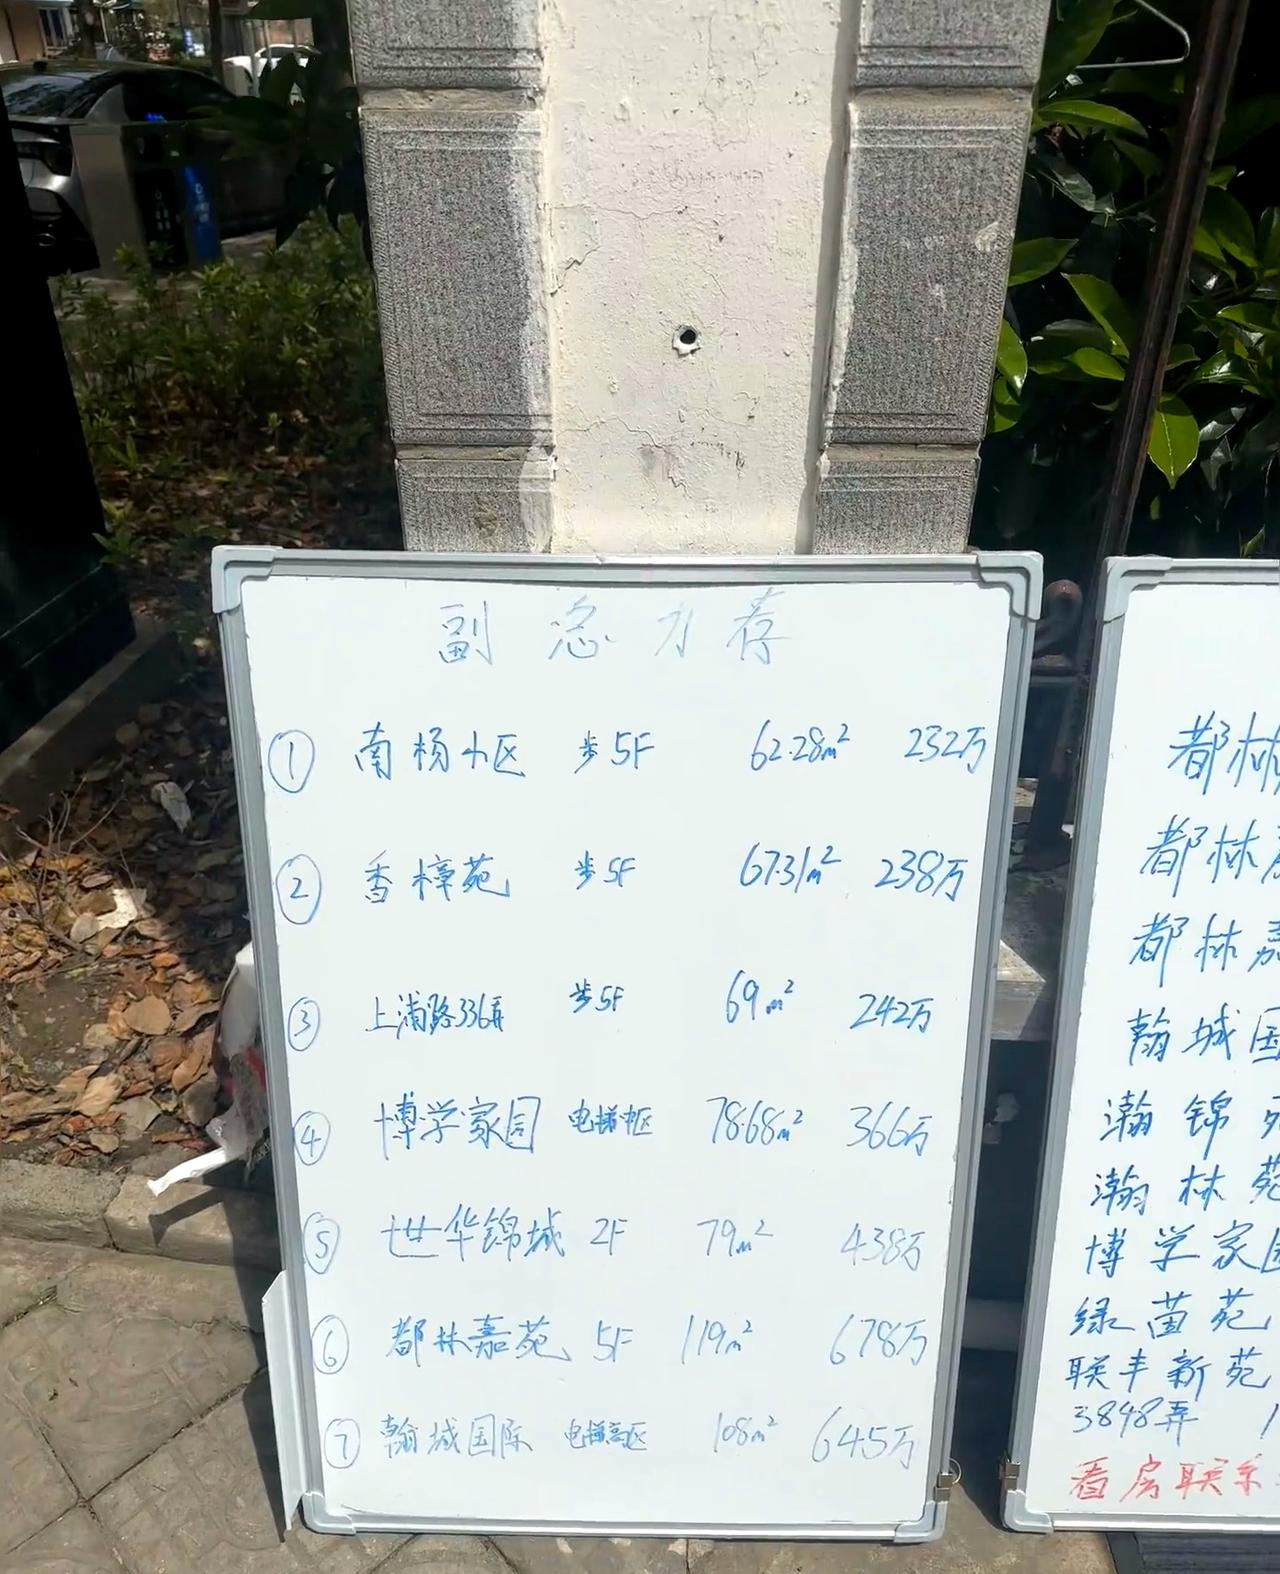 副总力荐
① 南杨小区 步5F 62.28m² 232万
② 香樟苑 步5F 67.31m² 238万
③ 上浦路336弄 步5F 69m² 242万
④ 博学家园 电梯中区 78.68m² 366万
⑤ 世华锦城 2F 79m² 438万
⑥ 都林嘉苑 5F 119m² 678万
⑦ 瀚城国际 电梯高区 108m² 645万
都林
都林
都林嘉
瀚城国
瀚锦苑
瀚林苑
博学家园
绿茵苑
联丰新苑
3848弄 1
看房联系